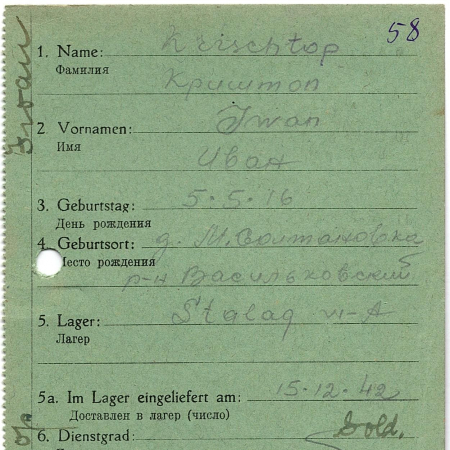 58
1. Name: Krischtop
Фамилия Криштоп
2 Vornamen: Iwan
Имя Иван
3. Geburtstag: 5.5.16
День рождения
4. Geburtsort: д. М. Солтановка
Место рождения р-н Васильковский
5. Lager: Stalag VI-A
Лагер
5a. Im Lager eingeliefert am: 15.12.42
Доставлен в лагер (число)
6. Dienstgrad: Sold.